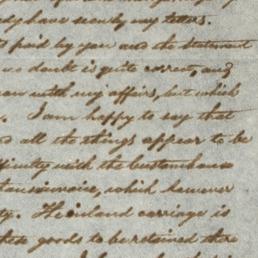 dy have nearly my letters.
to paid by you and the statement
no doubt is quite correct, and
with my affairs, but which
I am happy to say that
all the things appear to be
with the Customhouse
which however
ty. The inland carriage is
these goods to be retained there